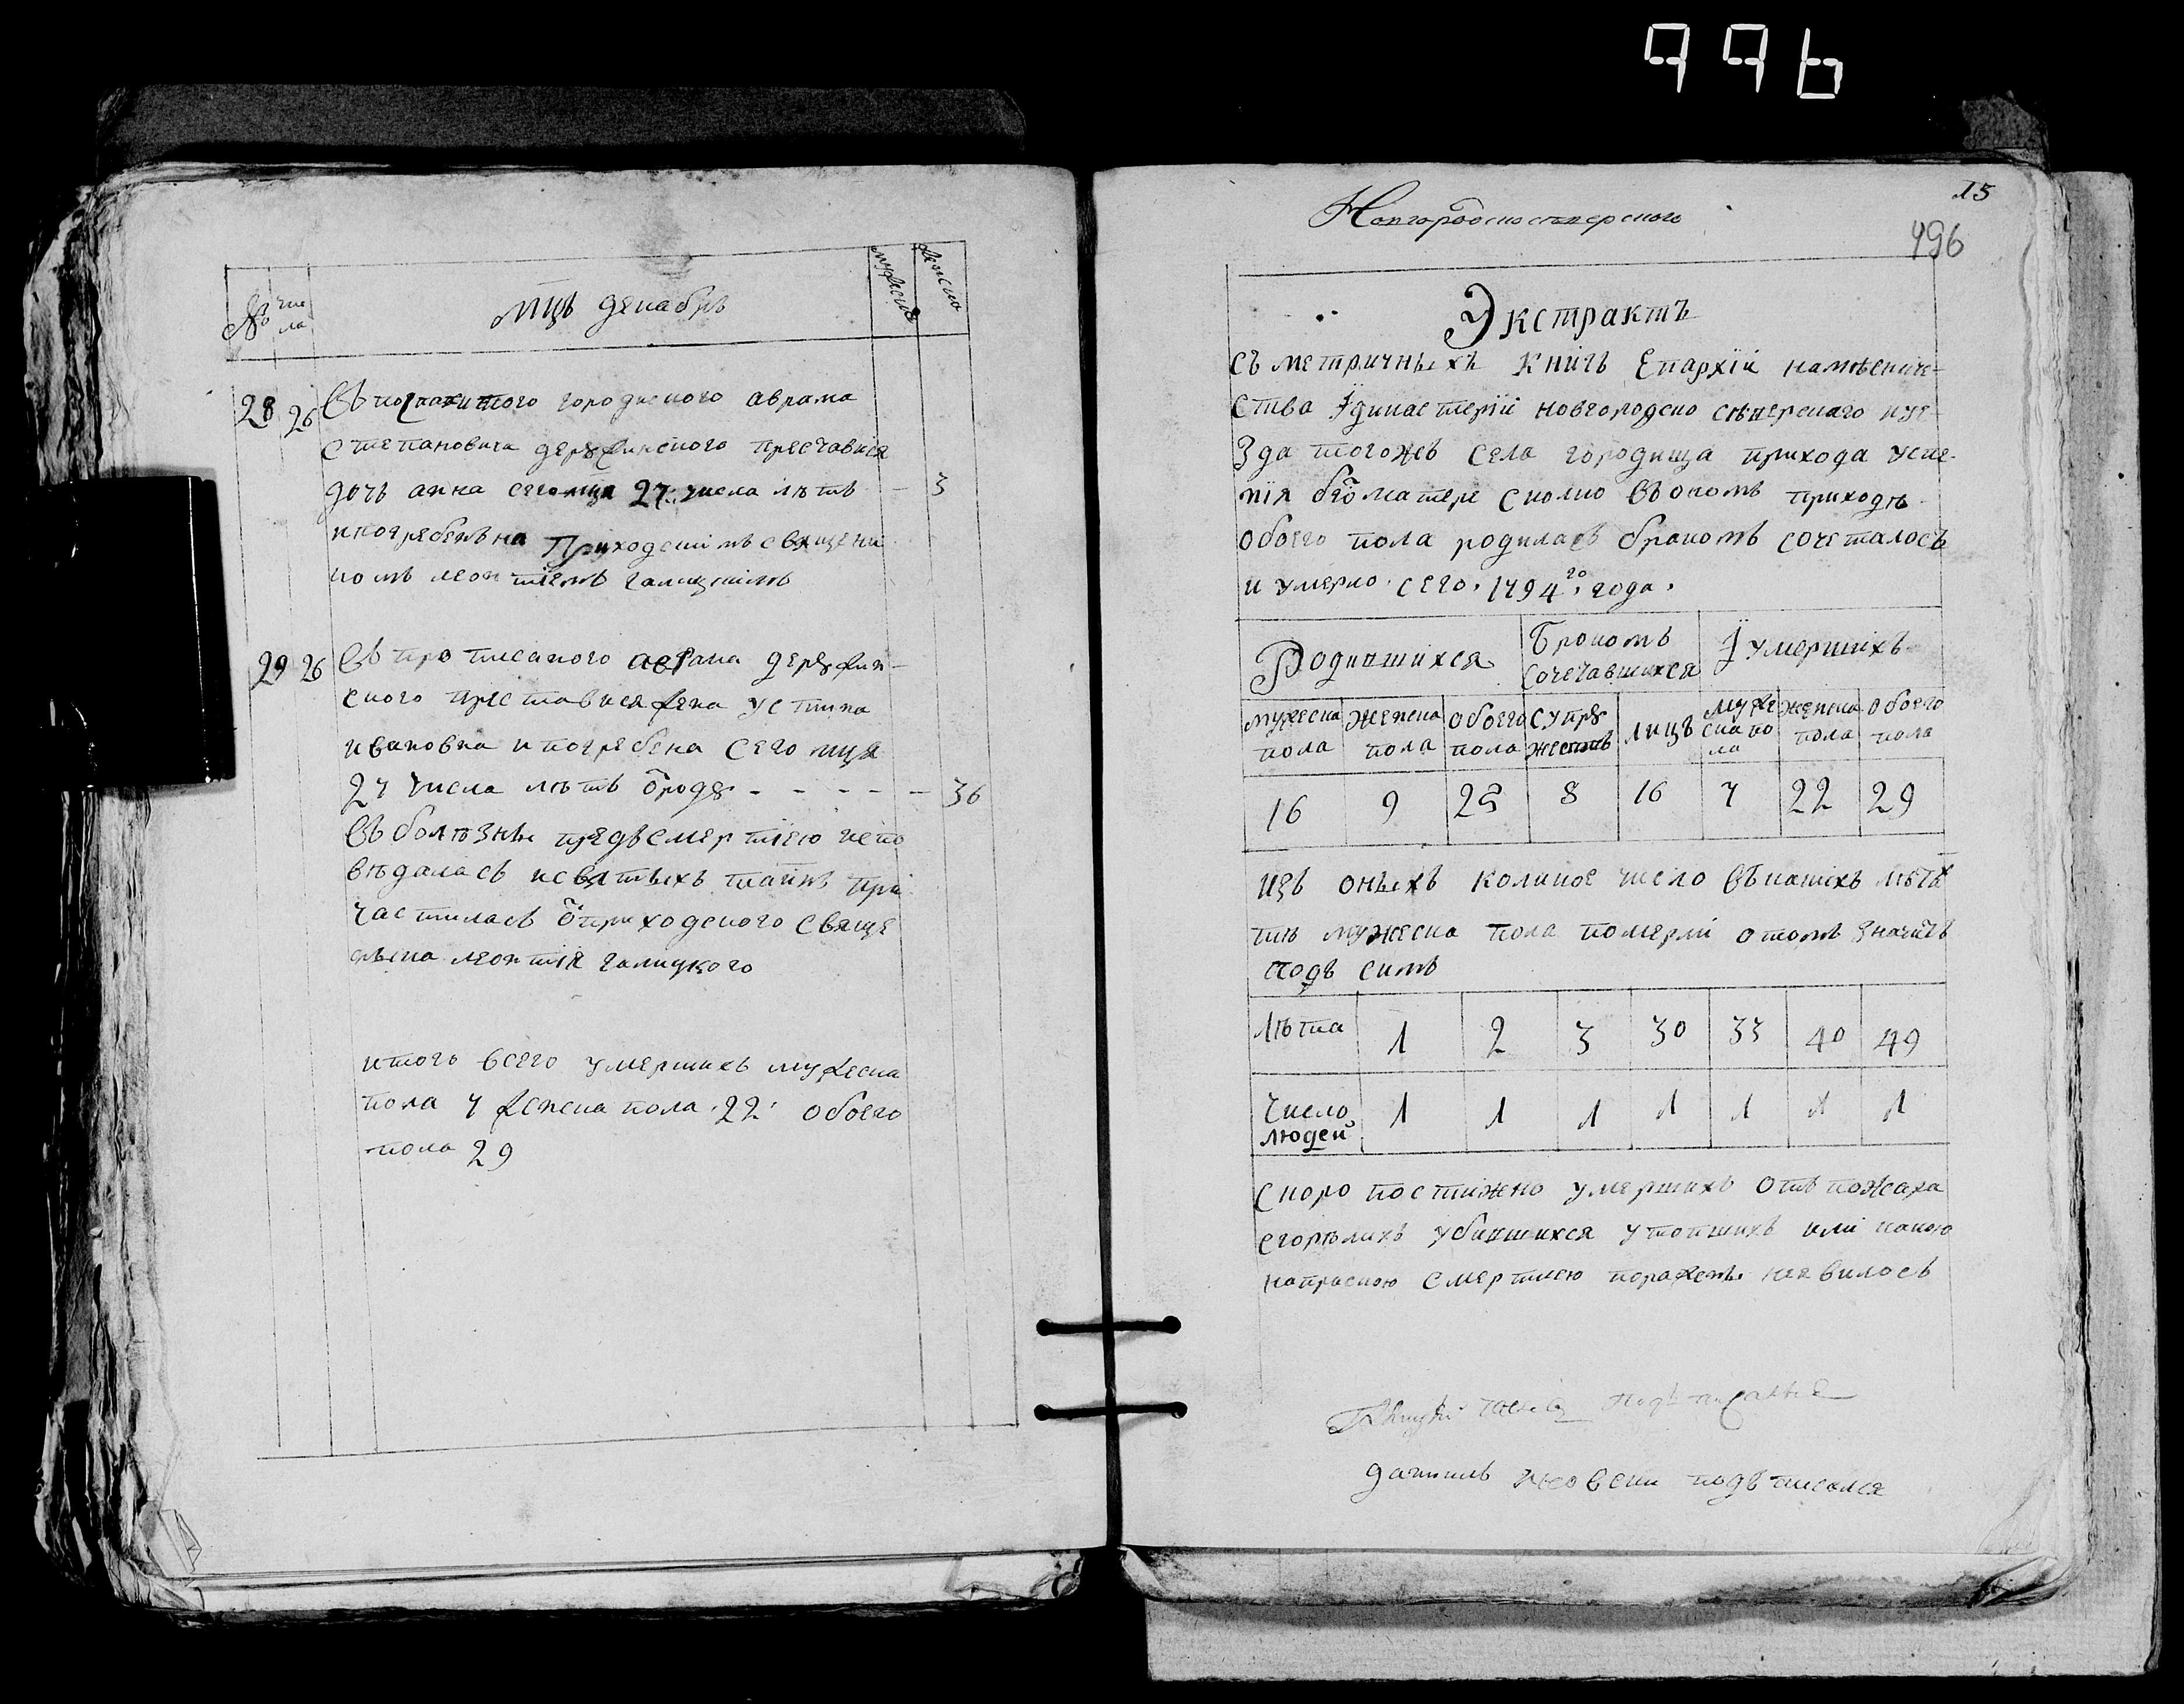 996
№ чи
сла
мцъ декабръ
мужеска
женска
28 26 Въ городиского аврама
степановича держинского преставися
дочь анна сегомця 27: числа лѣтъ - 3
и погребенъна Приходскимъ священи
комъ леонтіемъ галицкимъ
29 26 Въ прописаного аврама держин-
ского преставися жена устина
ивановна и погребена сего мця
27 числа лѣтъ ѿроду - - - - - 36
въ болѣзны предъсмертіею испо
вѣдалась исвятыхъ таинъ при
частилась ѿприходского свяще
ника леонтія галицкого
итого всего умершихъ мужеска
пола 7 женска пола 22: обоего
пола 29
15
Новгородскосѣверского
496
Экстрактъ
съ метричныхъ книгъ Епархіи намѣсниче-
ства Ідикастеріи новгородско сѣверскаго иуе-
зда тогожъ села городища прихода успе-
нія бго матере сколко въ ономъ приходѣ
обоего пола родилась бракомъ сочеталось
и умерло сего 1794го года.
Родившихся
Бракомъ
сочетавшихся
Іумершихъ
мужеска
пола
женска
пола
обоего
пола
супру
жествъ
лицъ
муже
ска по
ла
женска
пола
обоего
пола
16 9 25 8 16 7 22 29
изъ оныхъ коликое число въкакихъ лѣтахъ
мужеска пола померли отомъ значитъ
подъ симъ
лѣта 1 2 3 30 33 40 49
число
людей 1 1 1 1 1 1 1
Скоро постижно умершихъ отъ пожара
сгорѣлихъ убившихся утопшихъ или какою
напрасною смертию пораженъ неявилось
данилъ подъписался